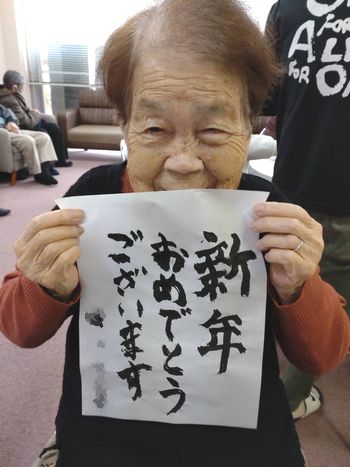 新年
おめでとう
ございます
O
FOR
A L
FOR O